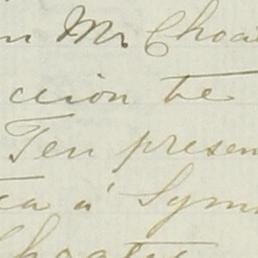 n Mr Choa
ccion be
Ten presen
ea a' Symm
Choate